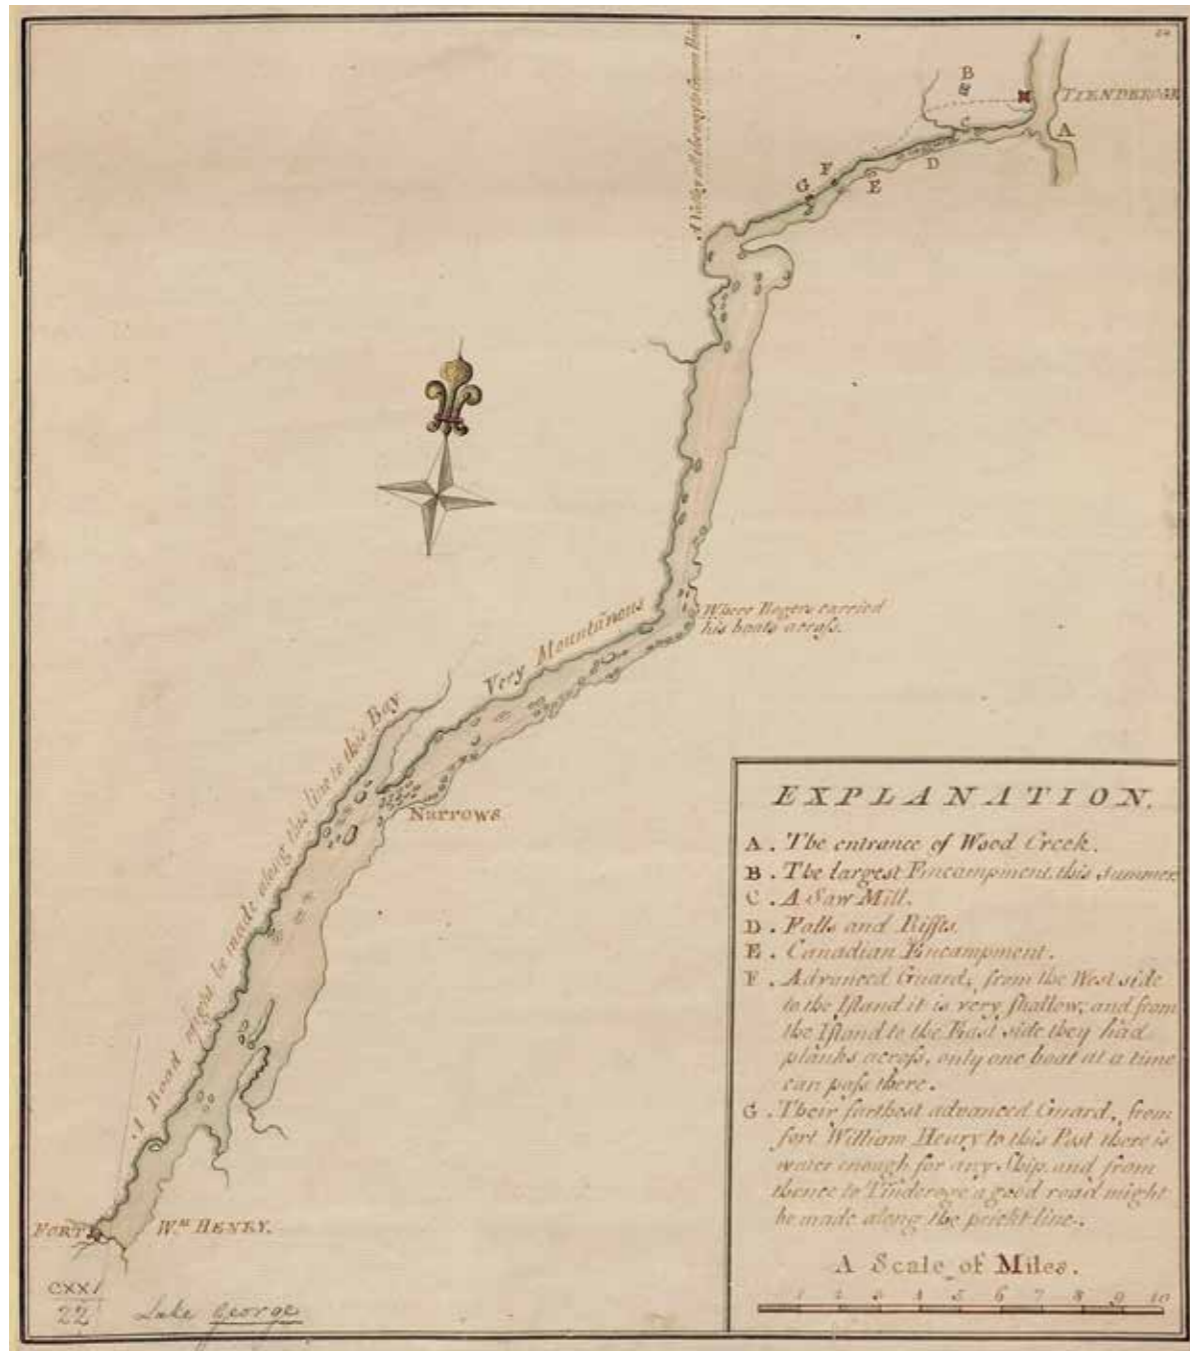 22
A Valley all the way to Crown Point
B
TIENDEROGE
C
A
D
F
E
G
Where Rogers carried
his boats across.
Very Mountanous
A Road might be made along this line to this Bay
Narrows
FORT Wm. HENRY.
CXXI
22
Lake George
EXPLANATION.
A. The entrance of Wood Creek.
B. The largest Encampment this summer
C. A Saw Mill.
D. Falls and Riffts.
E. Canadian Encampment.
F. Advanced Guard, from the West side
to the Island it is very shallow, and from
the Island to the East side they had
planks across, only one boat at a time
can pass there.
G. Their farthest advanced Guard, from
fort William Henry to this Post there is
water enough for any Ship, and from
thence to Tinderoge a good road might
be made along the prickt line.
A Scale of Miles.
1 2 3 4 5 6 7 8 9 10